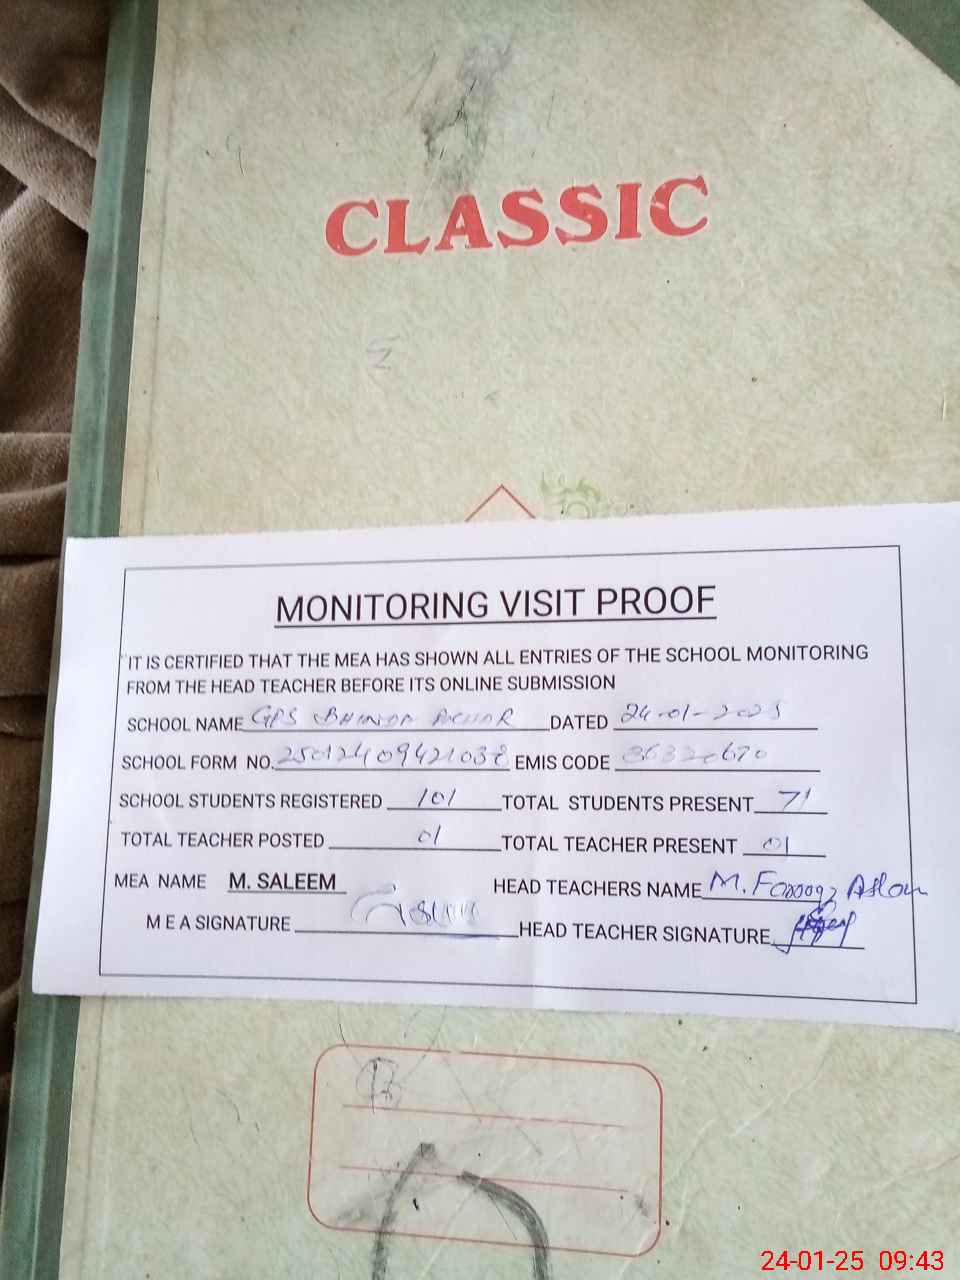 CLASSIC
MONITORING VISIT PROOF
IT IS CERTIFIED THAT THE MEA HAS SHOWN ALL ENTRIES OF THE SCHOOL MONITORING
FROM THE HEAD TEACHER BEFORE ITS ONLINE SUBMISSION
SCHOOL NAME GPS DATED 24-01-2025
SCHOOL FORM NO. EMIS CODE 36320670
SCHOOL STUDENTS REGISTERED 101 TOTAL STUDENTS PRESENT 71
TOTAL TEACHER POSTED 01 TOTAL TEACHER PRESENT 01
MEA NAME M. SALEEM HEAD TEACHERS NAME M. Farooq Aslam
M E A SIGNATURE HEAD TEACHER SIGNATURE
B
24-01-25 09:43